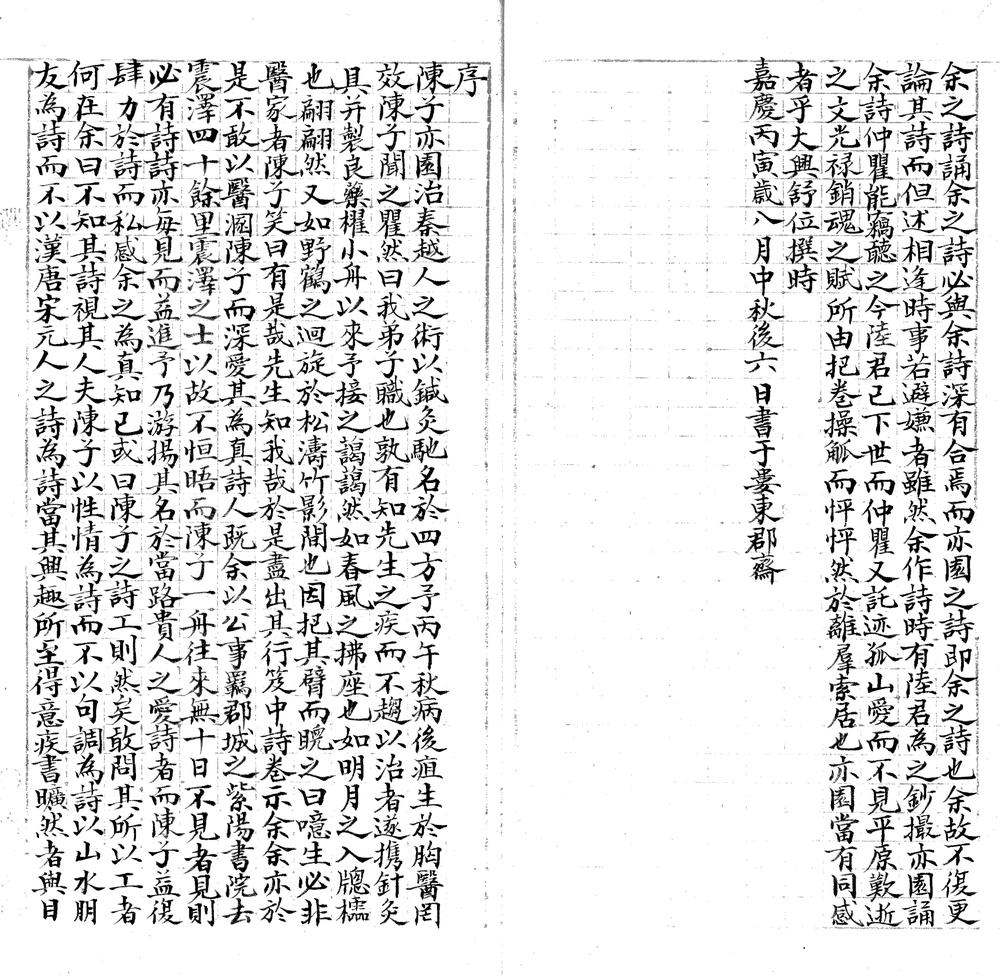 余之詩誦余之詩必與余詩深有合焉而亦園之詩即余之詩也余故不復更
論其詩而但述相逢時事若避嫌者雖然余作詩時有陸君為之鈔撮亦園誦
余詩仲瞿能竊聽之今陸君已下世而仲瞿又託迹孤山愛而不見平原歎逝
之文光祿銷魂之賦所由把卷操觚而怦怦然於離羣索居也亦園當有同感
者乎大興舒位撰時
嘉慶丙寅歲八月中秋後六日書于婁東郡齋
序
陳子亦園治秦越人之術以鍼灸馳名於四方予丙午秋病後疽生於胸醫罔
效陳子聞之瞿然曰我弟子職也孰有知先生之疾而不趨以治者遂携針灸
具并製良藥櫂小舟以來予接之藹藹然如春風之拂座也如明月之入牕櫺
也翩翩然又如野鶴之迴旋於松濤竹影間也因把其臂而睨之曰噫生必非
醫家者陳子笑曰有是哉先生知我哉於是盡出其行笈中詩卷示余余亦於
是不敢以醫溷陳子而深愛其為真詩人既余以公事羈郡城之紫陽書院去
震澤四十餘里震澤之士以故不恒晤而陳子一舟往來無十日不見者見則
必有詩詩亦每見而益進予乃游揚其名於當路貴人之愛詩者而陳子益復
肆力於詩而私感余之為真知己或曰陳子之詩工則然矣敢問其所以工者
何在余曰不知其詩視其人夫陳子以性情為詩而不以句調為詩以山水朋
友為詩而不以漢唐宋元人之詩為詩當其興趣所至得意疾書曠然者與目